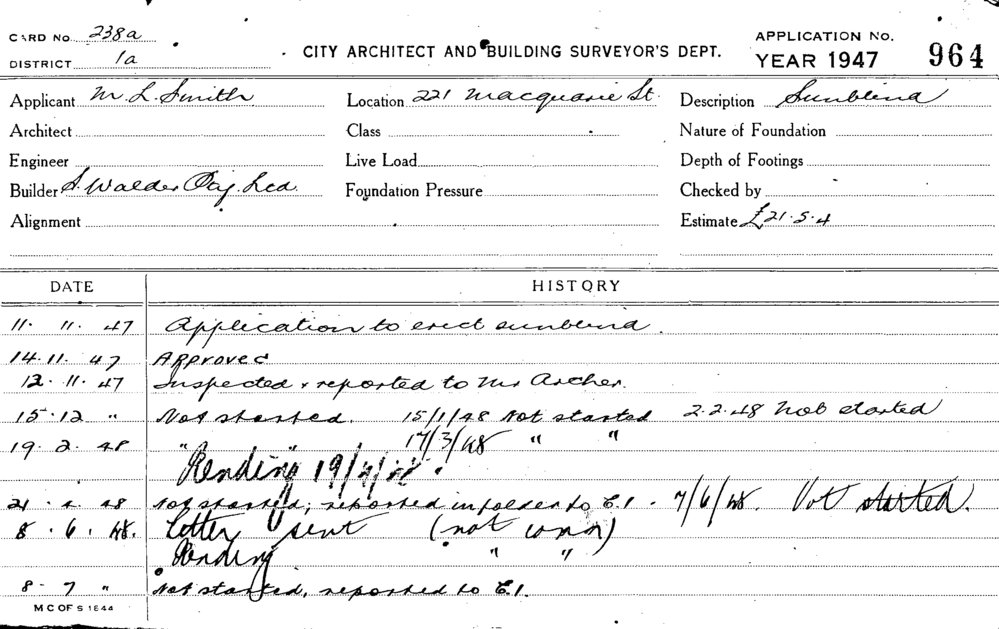 CARD No. 238a
DISTRICT 1a
CITY ARCHITECT AND BUILDING SURVEYOR'S DEPT.
APPLICATION No.
YEAR 1947 964
Applicant M. L. Smith Location 221 Macquarie St. Description Sunblind
Architect Class Nature of Foundation
Engineer Live Load Depth of Footings
Builder S. Walder Pty. Ltd. Foundation Pressure Checked by
Alignment Estimate £21.5.4
DATE HISTORY
11. 11. 47 Application to erect sunblind.
14.11. 47 Approved
12.11.47 Inspected & reported to Mr Archer.
15.12 " Not started. 15/1/48 Not started 2.2.48 Not started
19.2.48 " " 17/3/48 " "
Pending 19/4/48.
21.4.48 Not started; reported in folder to E.I. 7/6/48. Not started.
8.6.48. Letter sent (not comm)
Pending " "
8.7 " Not started, reported to E.I.
M C OF S 1844